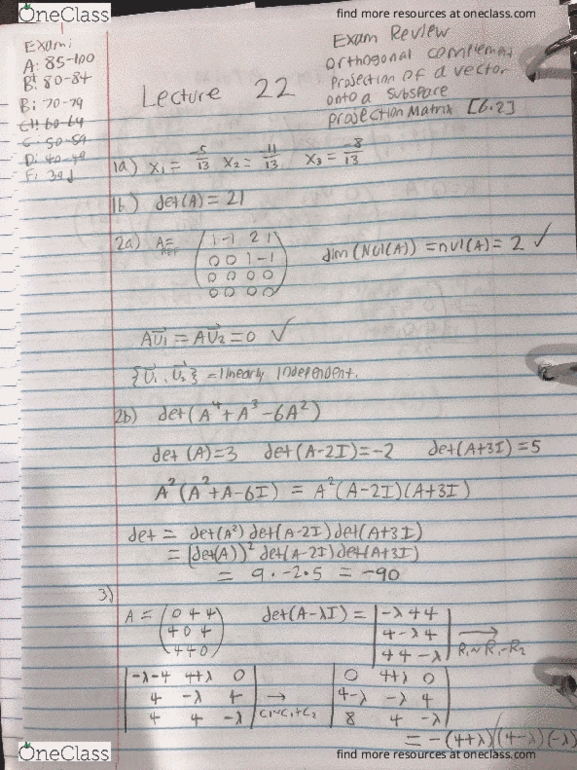 OneClass
find more resources at oneclass.com
Exam:
A: 85-100
B: 80-84
B: 70-79
C+: 60-64
C: 50-59
D: 40-49
F:
Lecture 22
Exam Review
orthogonal complement
projection of a vector
onto a subspace
projection Matrix [6.2]
1a) x₁ = -5/13 x₂ = -11/13 x₃ = -8/13
1b) det(A) = 21
2a) A =
1 -1 2 1
0 0 1 -1
0 0 0 0
0 0 0 0
dim(Nul(A)) = nul(A) = 2 ✓
AU₁ = AU₂ = 0 ✓
{U₁, U₂} = linearly independent.
2b) det(A⁴+A³-6A²)
det(A)=3 det(A-2I)=-2 det(A+3I)=5
A²(A²+A-6I) = A²(A-2I)(A+3I)
det = det(A²)det(A-2I)det(A+3I)
= (det(A))² det(A-2I)det(A+3I)
= 9·-2·5 = -90
3)
A = (0 4 4
4 0 4
4 4 0)
det(A-λI) = |-λ 4 4
4 -λ 4
4 4 -λ| R₁~R₁-R₂
|-λ-4 4+λ 0
4 -λ 4
4 4 -λ| → C₁~C₁+C₂
|0 4+λ 0
4-λ -λ 4
8 4 -λ|
= -(4+λ)((4-λ)(-λ)
OneClass
find more resources at oneclass.com